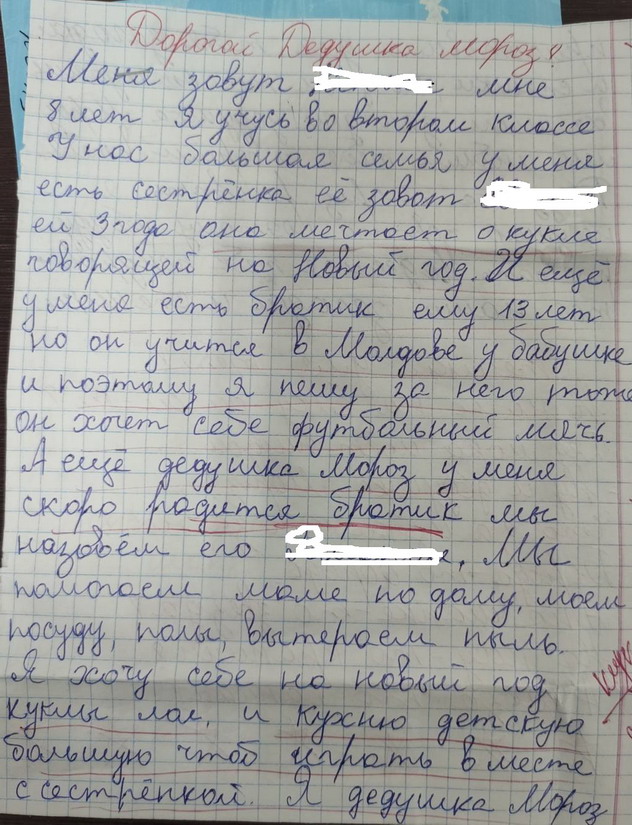 Дорогой Дедушка Мороз!
Меня зовут мне
8 лет Я учусь во втором классе
У нас большая семья у меня
есть сестрёнка её зовот
ей 3 года она мечтает о кукле
говорящей на Новый год. И ещё
у меня есть братик ему 13 лет
но он учится в Молдове у бабушке
и поэтому я пешу за него тоже
он хочет себе футбольный мячь.
А ещё дедушка Мороз у меня
скоро радится братик мы
назовём его , Мы
помогаем маме по дому, моем
посуду, полы, вытераем пыль.
Я хочу себе на новый год
куклы лол, и кухню детскую
большую чтоб играть в месте
с сестрёнкой. Я дедушка Мороз